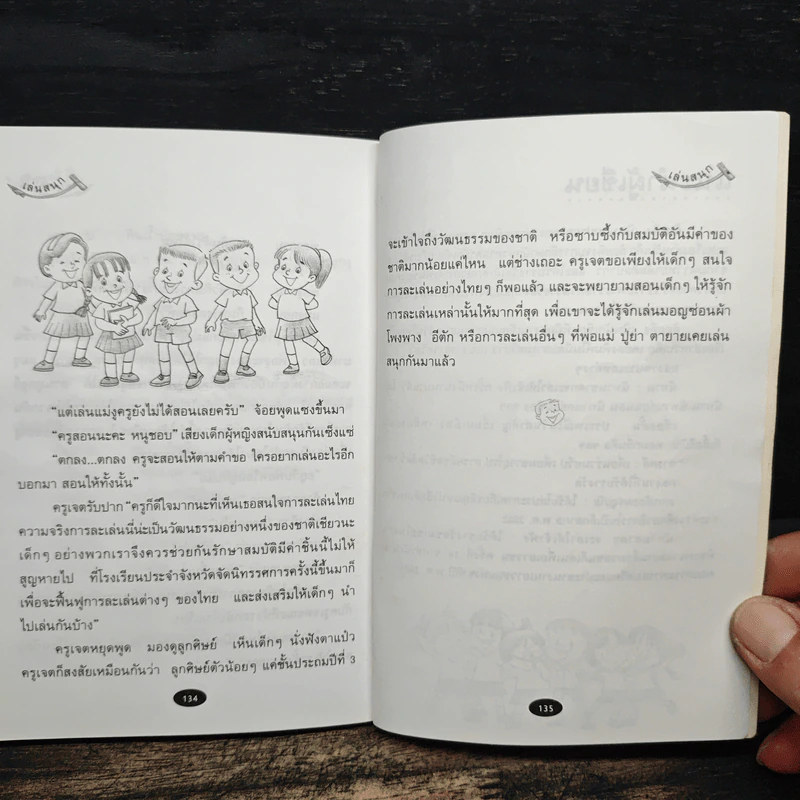 เล่นสนุก
"แต่เล่นแม่งูครูยังไม่ได้สอนเลยครับ" จ้อยพูดแซงขึ้นมา
"ครูสอนนะคะ หนูชอบ" เสียงเด็กผู้หญิงสนับสนุนกันเซ็งแซ่
"ตกลง...ตกลง ครูจะสอนให้ตามคำขอ ใครอยากเล่นอะไรอีก
บอกมา สอนให้ทั้งนั้น"
ครูเจตรับปาก "ครูก็ดีใจมากนะที่เห็นเธอสนใจการละเล่นไทย
ความจริงการละเล่นนี่น่ะเป็นวัฒนธรรมอย่างหนึ่งของชาติเชียวนะ
เด็กๆ อย่างพวกเราจึงควรช่วยกันรักษาสมบัติมีค่าชิ้นนี้ไม่ให้
สูญหายไป ที่โรงเรียนประจำจังหวัดจัดนิทรรศการครั้งนี้ขึ้นมาก็
เพื่อจะฟื้นฟูการละเล่นต่างๆ ของไทย และส่งเสริมให้เด็กๆ นำ
ไปเล่นกันบ้าง"
ครูเจตหยุดพูด มองดูลูกศิษย์ เห็นเด็กๆ นั่งฟังตาแป๋ว
ครูเจตก็สงสัยเหมือนกันว่า ลูกศิษย์ตัวน้อยๆ แค่ชั้นประถมปีที่ 3
134
เล่นสนุก
จะเข้าใจถึงวัฒนธรรมของชาติ หรือซาบซึ้งกับสมบัติอันมีค่าของ
ชาติมากน้อยแค่ไหน แต่ช่างเถอะ ครูเจตขอเพียงให้เด็กๆ สนใจ
การละเล่นอย่างไทยๆ ก็พอแล้ว และจะพยายามสอนเด็กๆ ให้รู้จัก
การละเล่นเหล่านั้นให้มากที่สุด เพื่อเขาจะได้รู้จักเล่นมอญซ่อนผ้า
โพงพาง อีตัก หรือการละเล่นอื่นๆ ที่พ่อแม่ ปู่ย่า ตายายเคยเล่น
สนุกกันมาแล้ว
135